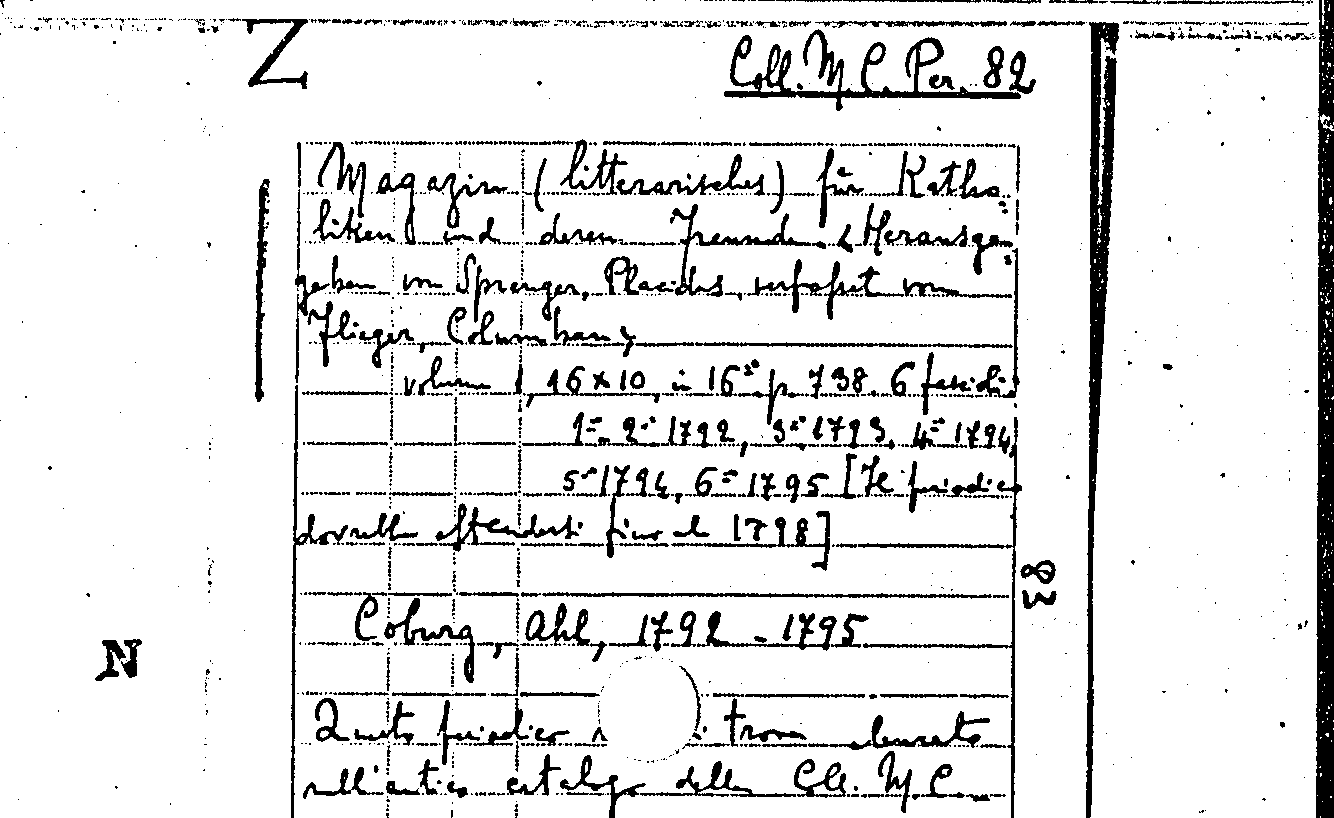 Z
Coll. M. C. Per. 82
Magazin (litterarisches) für Katho=
liken und deren Freunde. < Herausge=
geben von Sprenger, Placidus, verfasset von
Flieger, Columban>
volume 1, 16 x 10, in 16° p. 738. 6 fascicoli
1°- 2° 1792, 3° 1793, 4° 1794,
5° 1794, 6° 1795 [Il periodico
dovrebbe estendersi fino al 1798]
83
Coburg, Ahl, 1792 - 1795
N
Questo periodico si trova elencato
nell'antico catalogo della Coll. M. C.